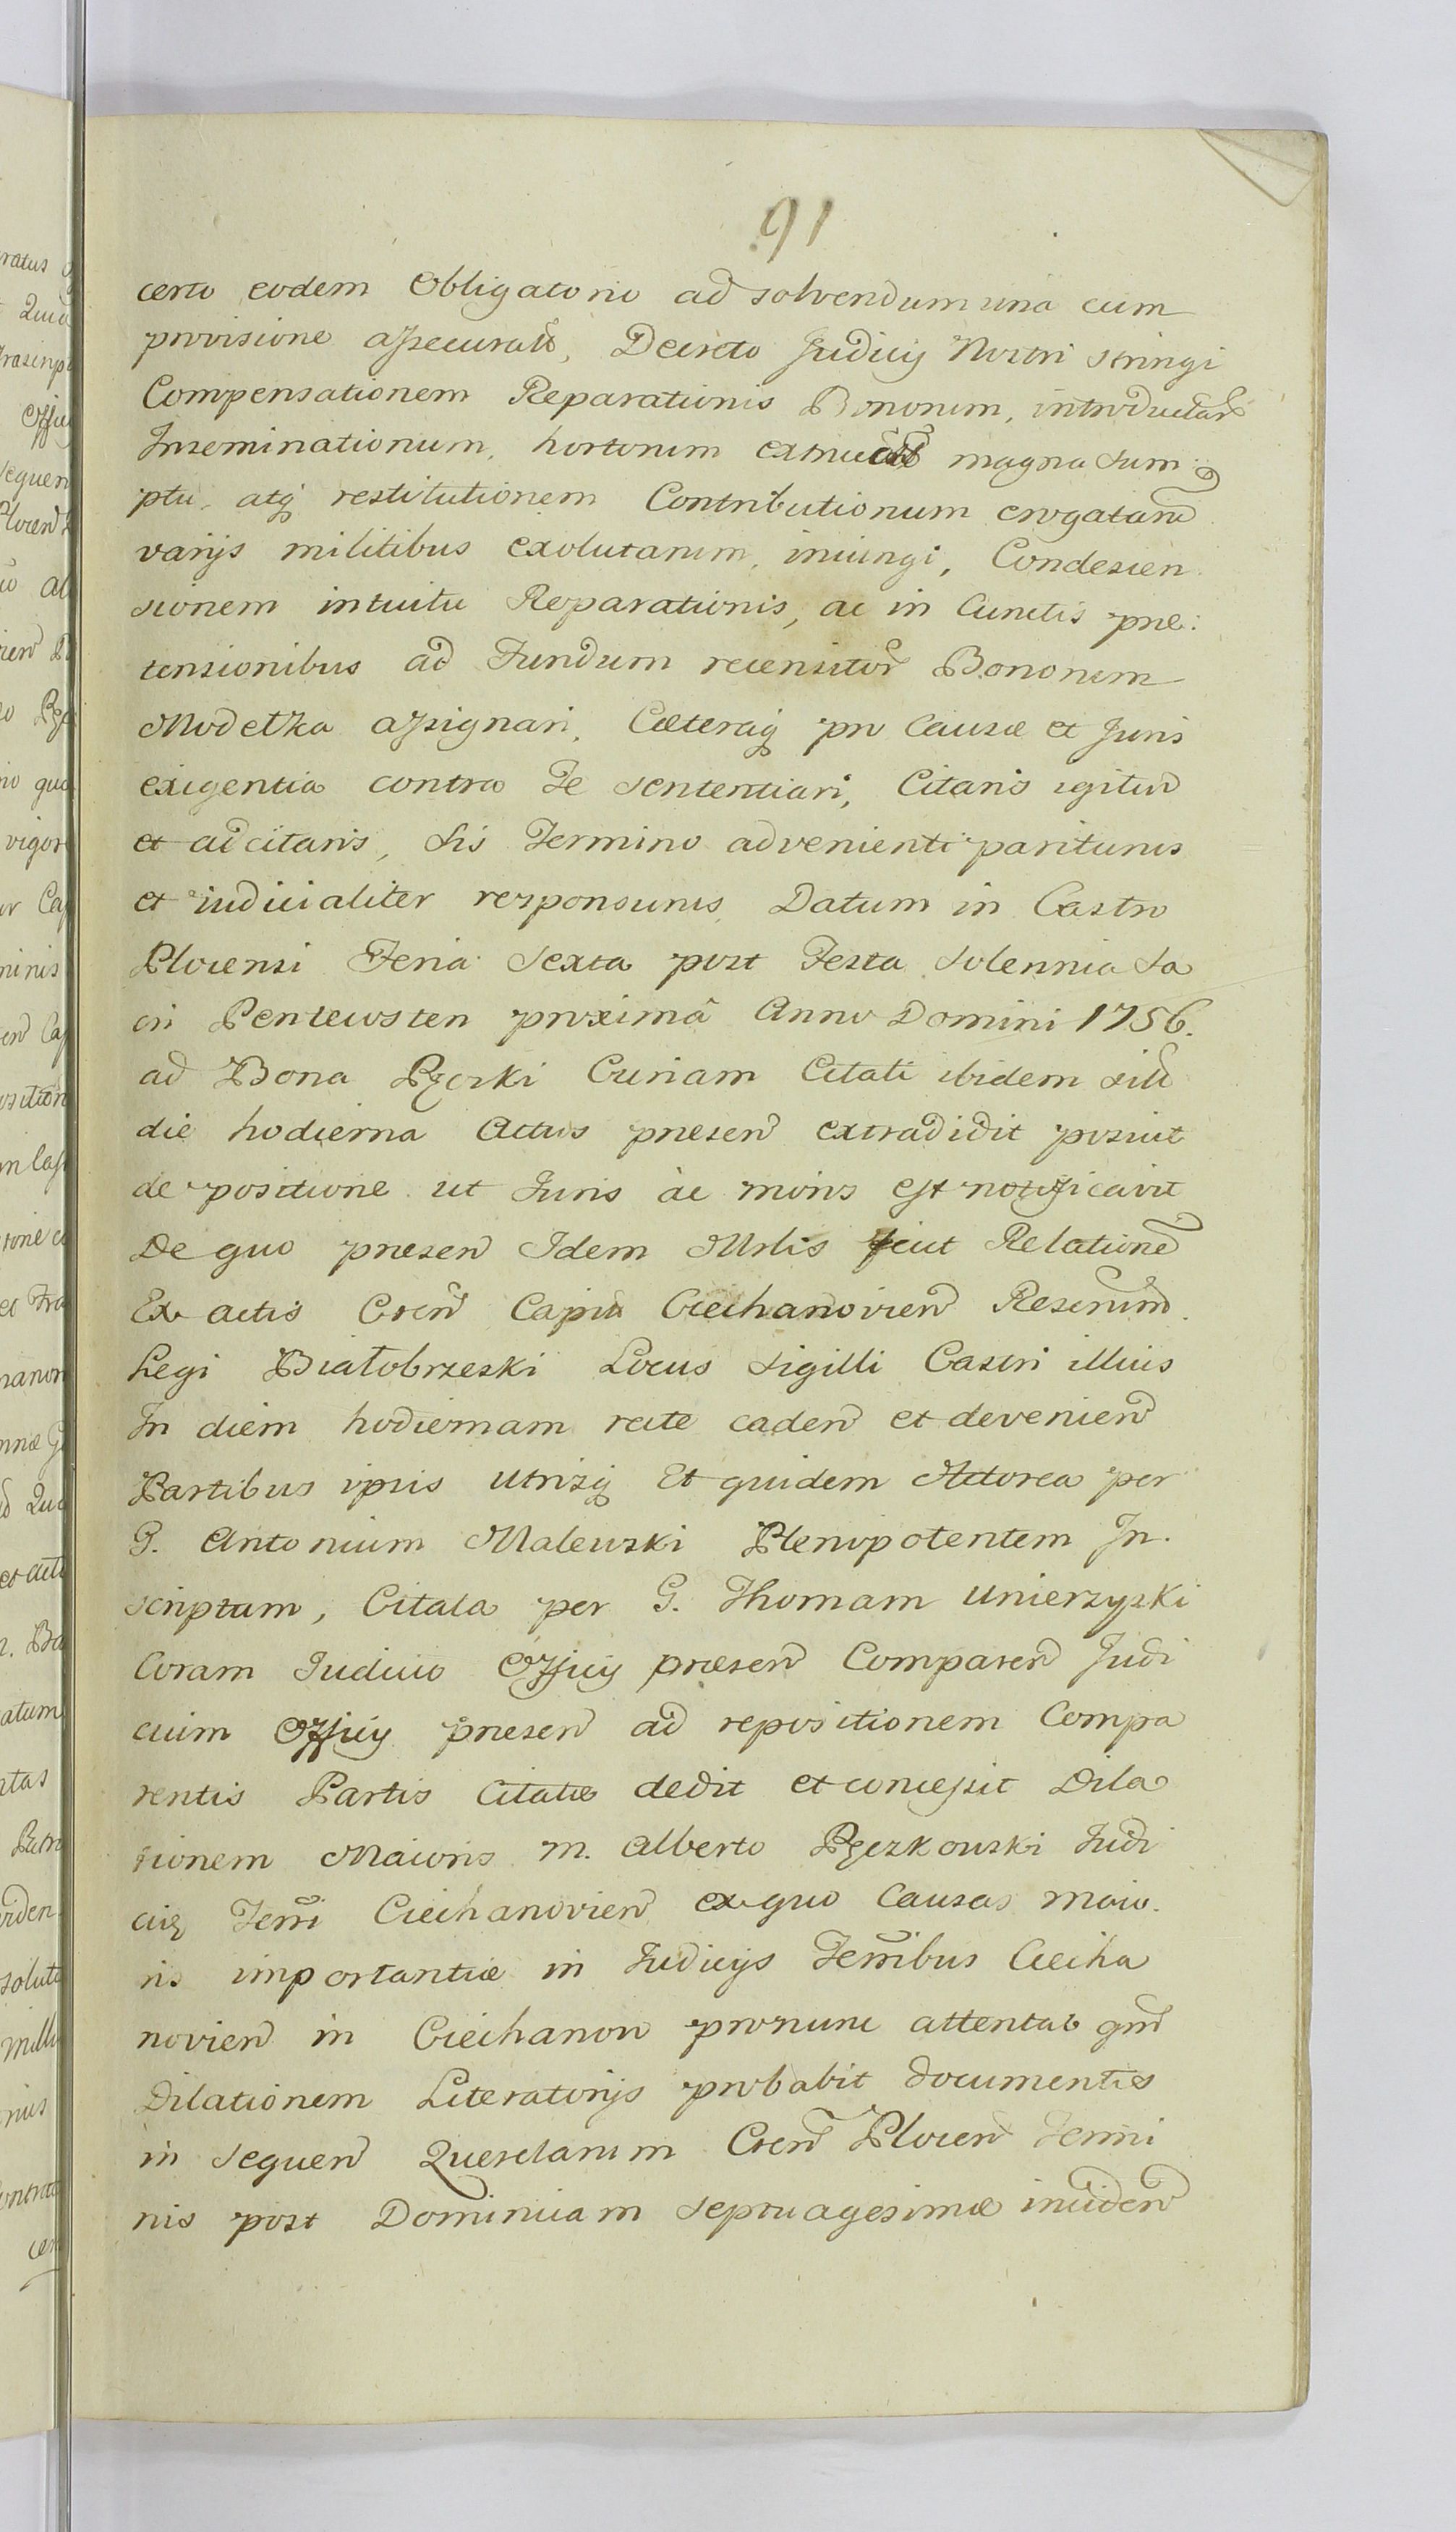 91
certo eodem Obligatorio ad solvendum una cum
provisione assecurat, Decreto Judicij Nostri stringi
Compensationem Reparationis Bonorum, introductar
Inseminationum, hortorum magna sum
ptu, atq restitutionem Contributionum erogatarū
varijs militibus exolutarum, iniungi, Condescen
sionem intuitu Reparationis, ac in Cunctis præ:
tensionibus ad Fundum recensitor Bonorum
Modełka assignari, Cæteraq pro Causæ et Juris
exigentia contra Te sententiari, Citaris igitur
et adcitaris, Sis Termino advenienti pariturus
et iudicialiter responsurus, Datum in Castro
Plocensi Feria Sexta post Festa Solennia Sa
cri Pentecosten proximâ Anno Domini 1756.
ad Bona Pęczki Curiam Citati ibidem
die hodierna Actus præsen extradidit posuit
de positione ut Juris ac moris est notificavit
De quo præsen Idem Mrlis fecit Relatione
Ex actis Cren Capit Ciechanovien Rescrium
Legi Białobrzeski Locus Sigilli Castri illius
In diem hodiernam recte caden et devenien
Partibus ipsis utrisq Et quidem Actorea per
G. Antonium Malewski Plenipotentem In
scriptum, Citata per G. Thomam Unierzyski
Coram Judicio Officij præsen Comparen Judi
cium Officij præsen ad repositionem Compa
rentis Partis Citatæ dedit et concessit Dila
tionem Maioris M. Alberto Pęczkowski Judi
ciq Terri Ciechanovien ex quo Causas maio
ris importantiæ in Judicijs Terribus Ciecha
novien in Ciechanow pronunc attentab qm
Dilationem Literatorijs probabit documentis
in sequen Querelarum Cren Plocen Termi
nis post Dominicam Septuagesimæ inciden